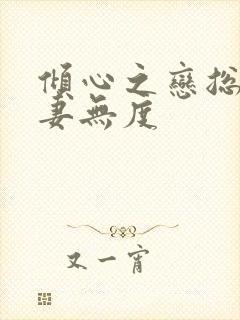 傾心之戀總
妻無度
又一宵